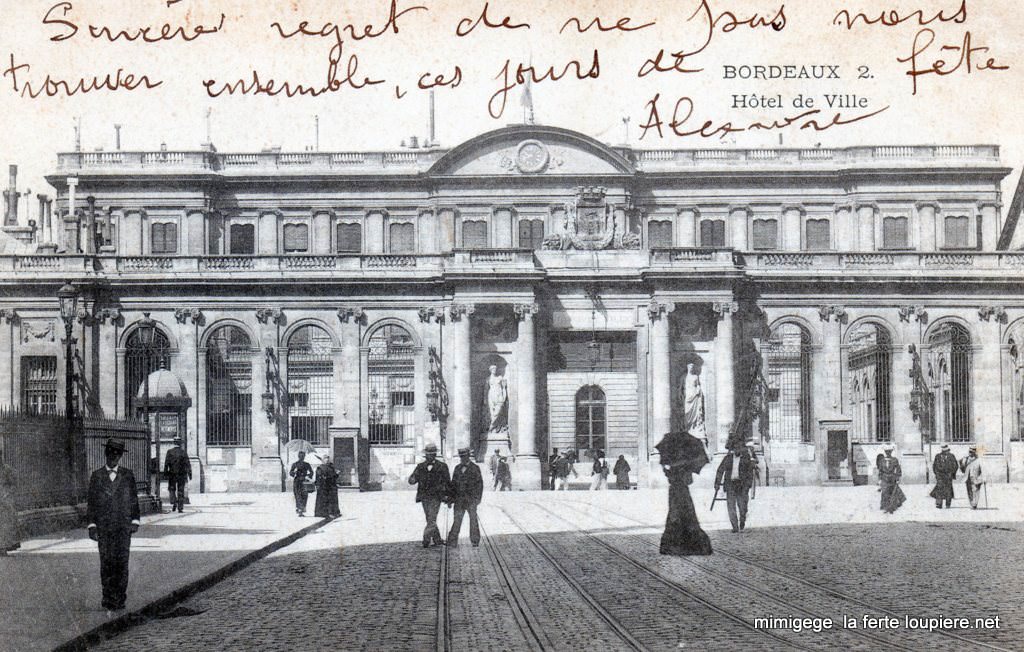 Sincère regret de ne pas nous
trouver ensemble, ces jours de fête
BORDEAUX 2.
Hôtel de Ville
Alexandre
mimigege la ferte loupiere.net